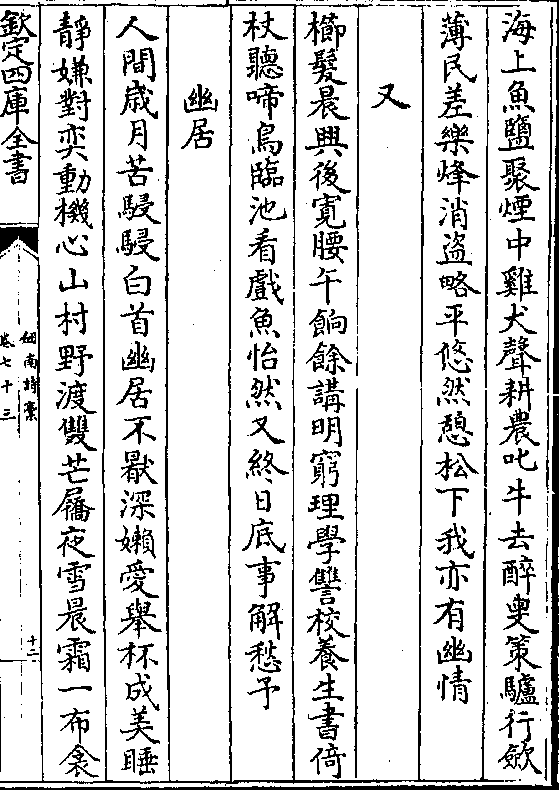 海上魚鹽聚煙中雞犬聲耕農叱牛去醉叟策驢行歛
薄民差樂烽消盜略平悠然憩松下我亦有幽情
又
櫛髮晨興後寬腰午餉餘講明窮理學讐校養生書倚
杖聽啼鳥臨池看戲魚怡然又終日底事解愁予
幽居
人間歲月苦駸駸白首幽居不厭深嬾愛舉杯成美睡
靜嫌對奕動機心山村野渡雙芒屩夜雪晨霜一布衾
欽定四庫全書
劒南詩槀
卷七十三
十二